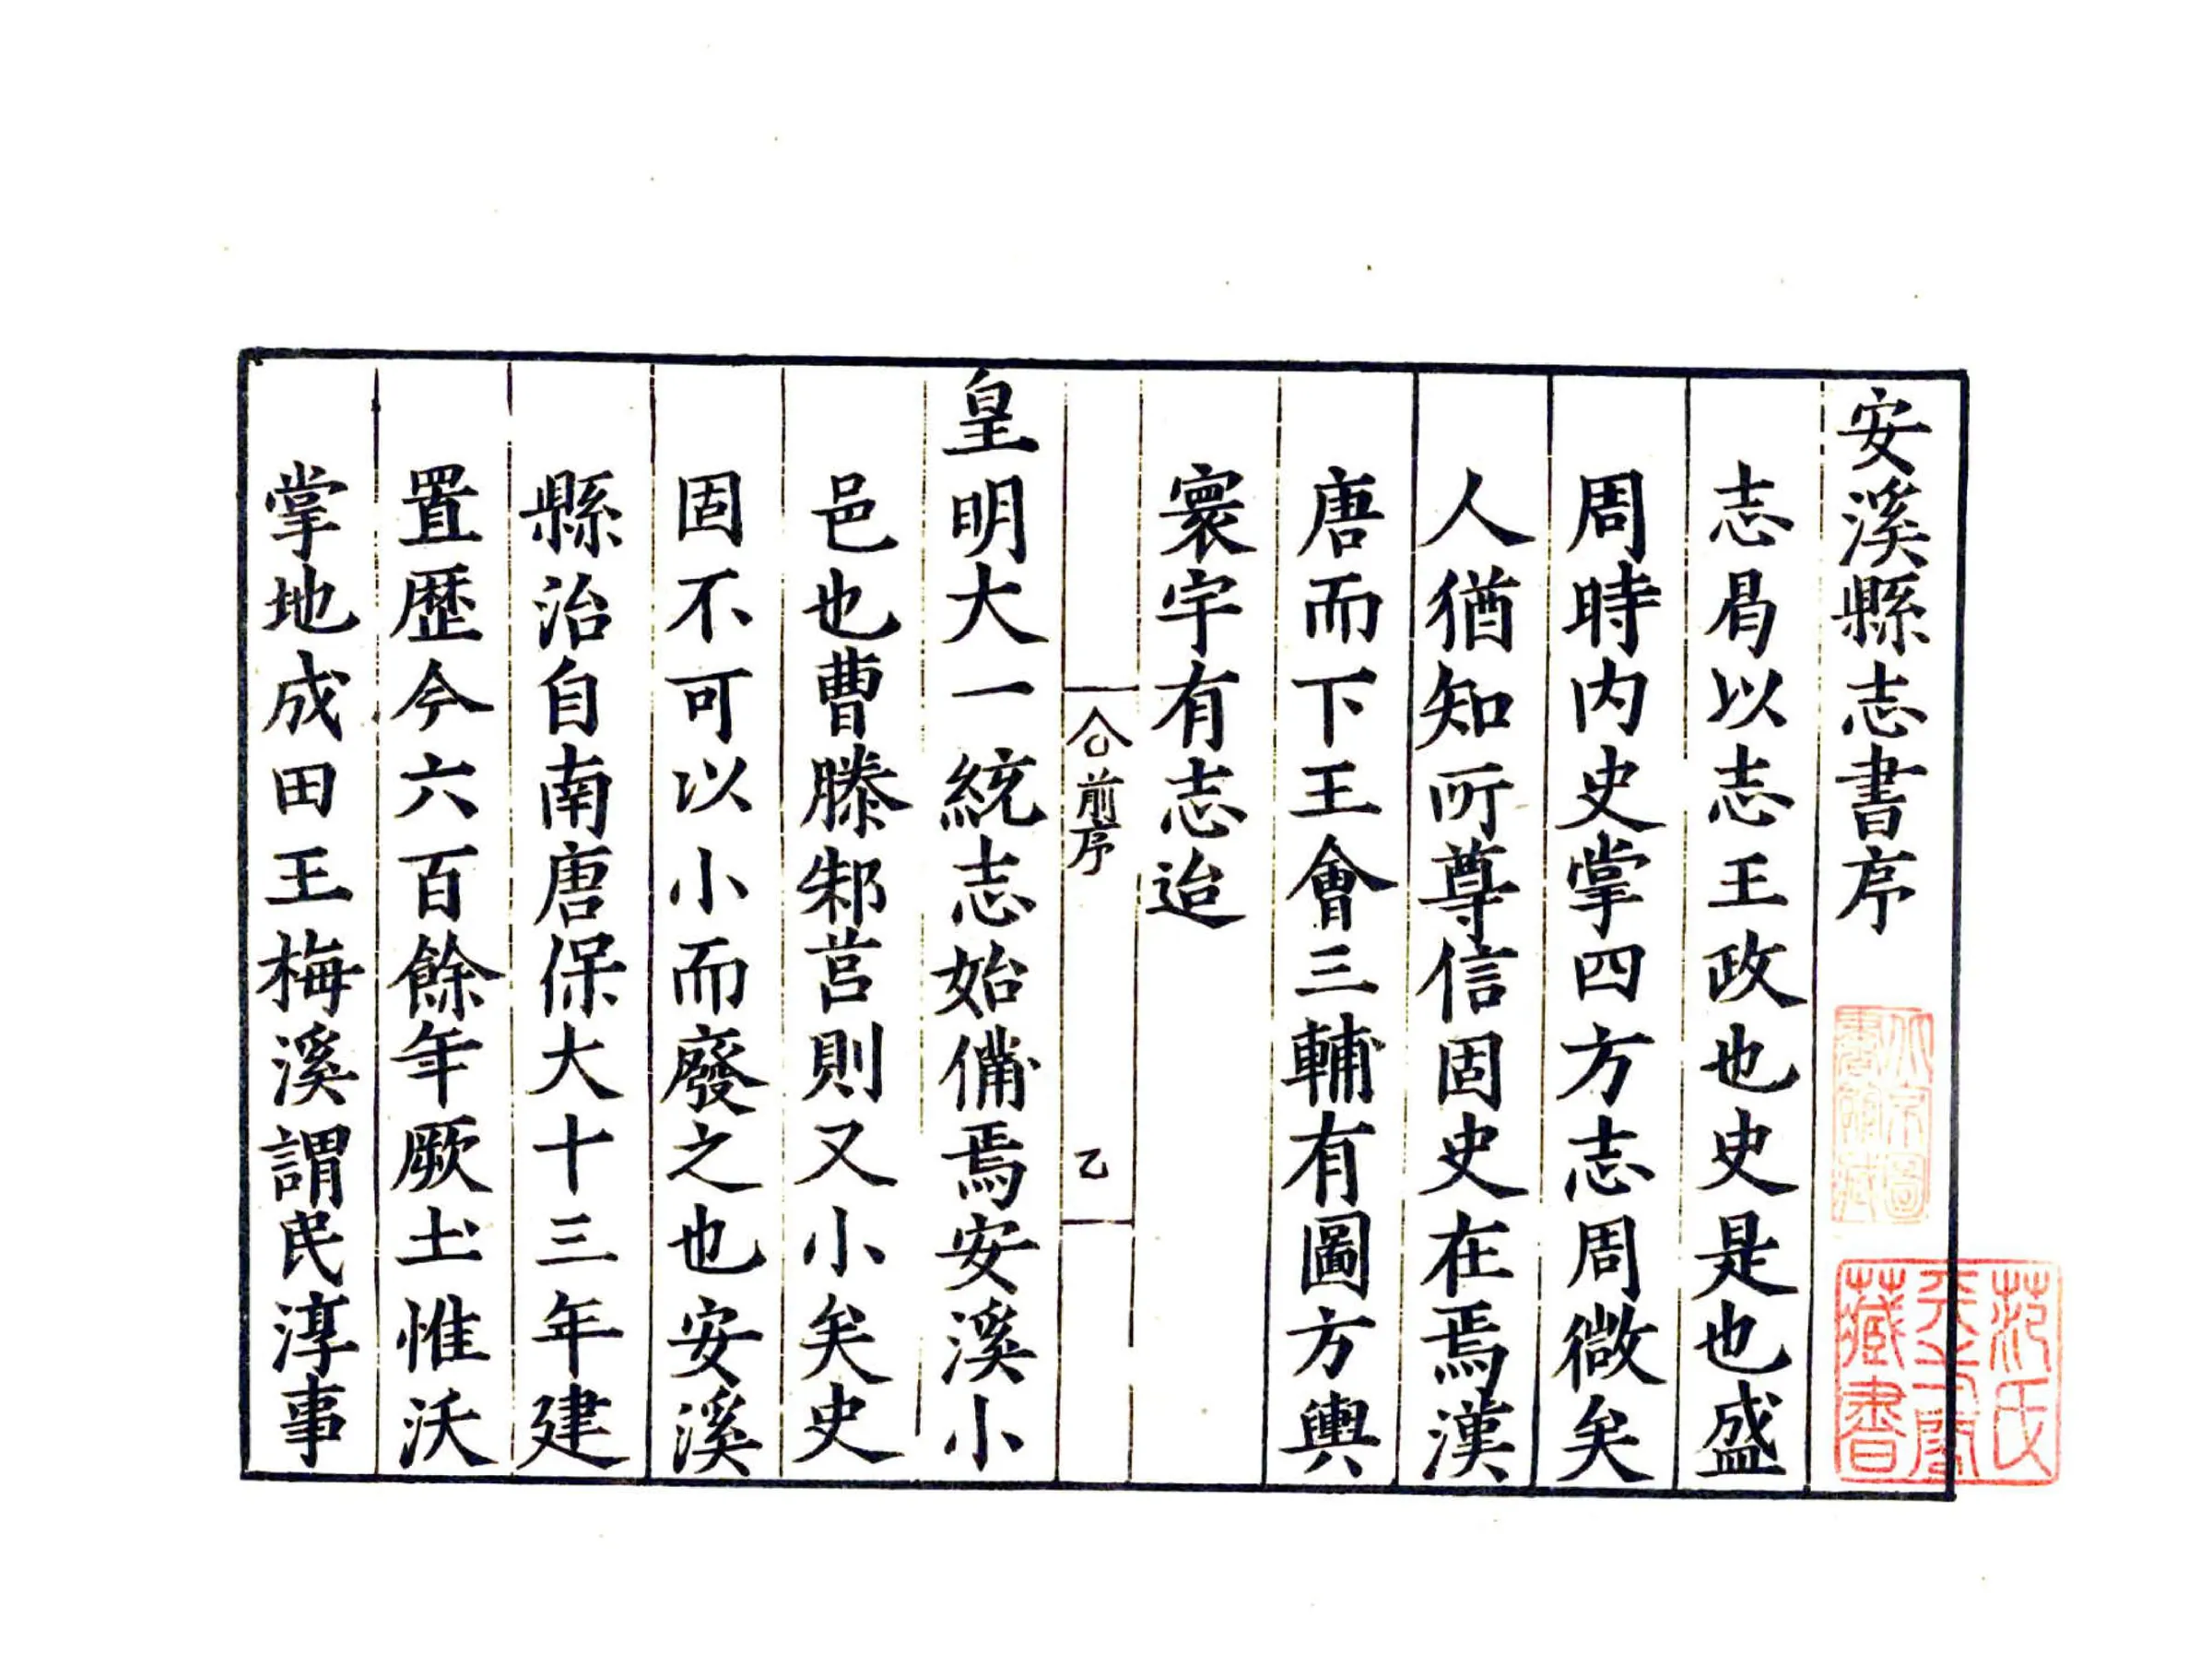 安溪縣志書序
志曷以志王政也史是也盛
周時内史掌四方志周微矣
人猶知所尊信固史在焉漢
唐而下王會三輔有圖方輿
寰宇有志迨
前序
乙
皇明大一統志始備焉安溪小
邑也曹滕邾莒則又小矣史
固不可以小而廢之也安溪
縣治自南唐保大十三年建
置歷今六百餘年厥土惟沃
掌地成田王梅溪謂民淳事
范氏
天一閣
藏書